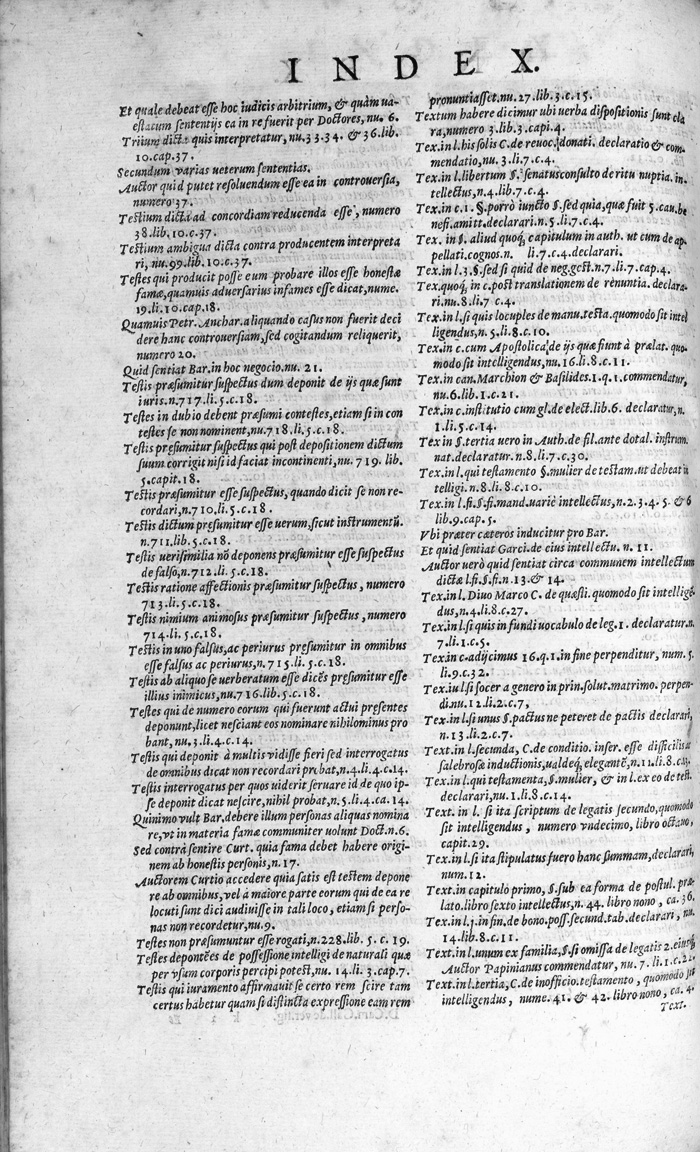 INDEX.
Et quale debeat esse hoc iudicis arbitrium, & quàm ua-
estatum sententijs ea in re fuerit per Doctores, nu. 6.
Trium dicta quis interpretatur, nu.33.34. & 36.lib.
10.cap.37.
Secundum varias ueterum sententias.
Auctor quid putet resoluendum esse ea in controuersia,
numero 37.
Testium dicta ad concordiam reducenda esse, numero
38.lib.10.c.37.
Testium ambigua dicta contra producentem interpreta
ri, nu.99.lib.10.c.37.
Testes qui producit posse eum probare illos esse honestæ
famæ, quamuis aduersarius infames esse dicat, nume.
19.li.10.cap.18.
Quamuis Petr. Anchar. aliquando casus non fuerit deci
dere hanc controuersiam, sed cogitandum reliquerit,
numero 20.
Quid sentiat Bar. in hoc negocio. nu. 21.
Testis præsumitur suspectus dum deponit de ijs quæ sunt
iuris. n.717.li.5.c.18.
Testes in dubio debent præsumi contestes, etiam si in con
testes se non nominent, nu.718.li.5.c.18.
Testis presumitur suspectus qui post depositionem dictum
suum corrigit nisi id faciat incontinenti, nu. 719. lib.
5.capit.18.
Testis præsumitur esse suspectus, quando dicit se non re-
cordari, n.710.li.5.c.18.
Testis dictum presumitur esse uerum, sicut instrumentū.
n.711.lib.5.c.18.
Testis uerisimilia nō deponens præsumitur esse suspectus
de falso, n.712.li.5.c.18.
Testis ratione affectionis præsumitur suspectus, numero
713.li.5.c.18.
Testis nimium animosus præsumitur suspectus, numero
714.li.5.c.18.
Testis in uno falsus, ac periurus presumitur in omnibus
esse falsus ac periurus, n.715.li.5.c.18.
Testis ab aliquo se uerberatum esse dicēs presumitur esse
illius inimicus, nu.716.lib.5.c.18.
Testes qui de numero eorum qui fuerunt actui presentes
deponunt, licet nesciant eos nominare nihilominus pro
bant, nu.3.li.4.c.14.
Testis qui deponit à multis vidisse fieri sed interrogatus
de omnibus dicat non recordari probat, n.4.li.4.c.14.
Testis interrogatus per quos uiderit seruare id de quo ip-
se deponit dicat nescire, nihil probat, n.5.li.4.ca.14.
Quinimo vult Bar. debere illum personas aliquas nomina
re, vt in materia famæ communiter uolunt Doct.n.6.
Sed contrà sentire Curt. quia fama debet habere origi-
nem ab honestis personis, n.17.
Auctorem Curtio accedere quia satis est testem depone
re ab omnibus, vel à maiore parte eorum qui de ea re
locuti sunt dici audiuisse in tali loco, etiam si perso-
nas non recordetur, nu.9.
Testes non præsumuntur esse rogati, n.228.lib. 5. c. 19.
Testes deponētes de possessione intelligi de naturali quæ
per vsum corporis percipi potest, nu. 14.li. 3.cap.7.
Testis qui iuramento affirmauit se certo rem scire tam
certus habetur quam si distincta expressione eam rem
pronuntiasset. nu.27.lib.3.c.15.
Textum habere dicimur ubi uerba dispositionis sunt cla
ra, numero 3.lib.3.capi.4.
Tex.in l. his solis C. de reuoc. donati. declaratio & com-
mendatio, nu.3.li.7.c.4.
Tex.in l. libertum §. senatusconsulto de ritu nuptia. in-
tellectus, n.4.lib.7.c.4.
Tex.in c.1. §. porrò iuncto §. sed quia, quæ fuit 5.cau. be
nefi. amitt. declarari.n.5.li.7.c.4.
Tex. in §. aliud quoq; capitulum in auth. ut cum de ap-
pellati. cognos.n. li.7.c.4.declarari.
Tex.in l.3.§. sed si quid de neg.gest.n.7.li.7.cap.4.
Tex. quoq; in c. post translationem de renuntia. declara-
ri.nu.8.li.7 c.4.
Tex.in l. si quis locuples de manu. testa. quomodo sit intel
ligendus, n.5.li.8.c.10.
Tex.in c. cum Apostolica, de ijs quæ fiunt à prælat. quo-
modo sit intelligendus, nu.16.li.8.c.11.
Tex.in can. Marchion & Basilides.1.q.1. commendatur,
nu.6.lib.1.c.21.
Tex.in c. institutio cum gl. de elect.lib.6. declaratur, n.
1.li.5.c.14.
Tex in §. tertia uero in Auth. de fil. ante dotal. instrum.
nat. declaratur. n.8.li.7.c.30.
Tex.in l. qui testamento §. mulier de testam. ut debeat in
telligi. n.8.li.8.c.10.
Tex.in l. fi.§. fi. mand. uariè intellectus, n.2.3.4. 5. & 6
lib.9.cap.5.
Vbi præter cæteros inducitur pro Bar.
Et quid sentiat Garci. de eius intellectu. n. 11.
Auctor uerò quid sentiat circa communem intellectum
dictæ l. fi.§. fi. n.13. & 14.
Tex.in l. Diuo Marco C. de quæsti. quomodo sit intellige
dus, n.4.li.8.c.27.
Tex.in l. si quis in fundi uocabulo de leg.1. declaratur. n.
7.li.1.c.5.
Tex.in c. adijcimus 16.q.1. in fine perpenditur, num. 5.
li.9.c.32.
Tex.iu l. si socer a genero in prin. solut. matrimo. perpen-
di.nu.12.li.2.c.7,
Tex.in l. si unus §. pactus ne peteret de pactis declarari,
n.13.li.2.c.7.
Text.in l. secunda, C. de conditio. inser. esse difficilis a
salebrosæ inductionis, ualdeq; elegantē, n.11.li.8.ca.
Tex.in l. qui testamenta, §. mulier, & in l. ex eo de test.
declarari, nu.1.li.8.c.14.
Text. in l. si ita scriptum de legatis secundo, quomodo
sit intelligendus, numero vndecimo, libro octauo,
capit.29.
Tex.in l. si ita stipulatus fuero hanc summam, declarari,
num.12.
Text. in capitulo primo, §. sub ea forma de postul. præ-
lato. libro sexto intellectus, n. 44. libro nono, ca.36.
Tex.in l. j. in fin. de bono. poss. secund. tab. declarari, nu.
14.lib.8.c.11.
Text.in l. unum ex familia, §. si omissa de legatis 2. eiusq;
Auctor Papinianus commendatur, nu. 7. li.1.c.21.
Text.in l. tertia, C. de inofficio. testamento, quomodo sit
intelligendus, nume. 41. & 42. libro nono, ca. 4.
Text.